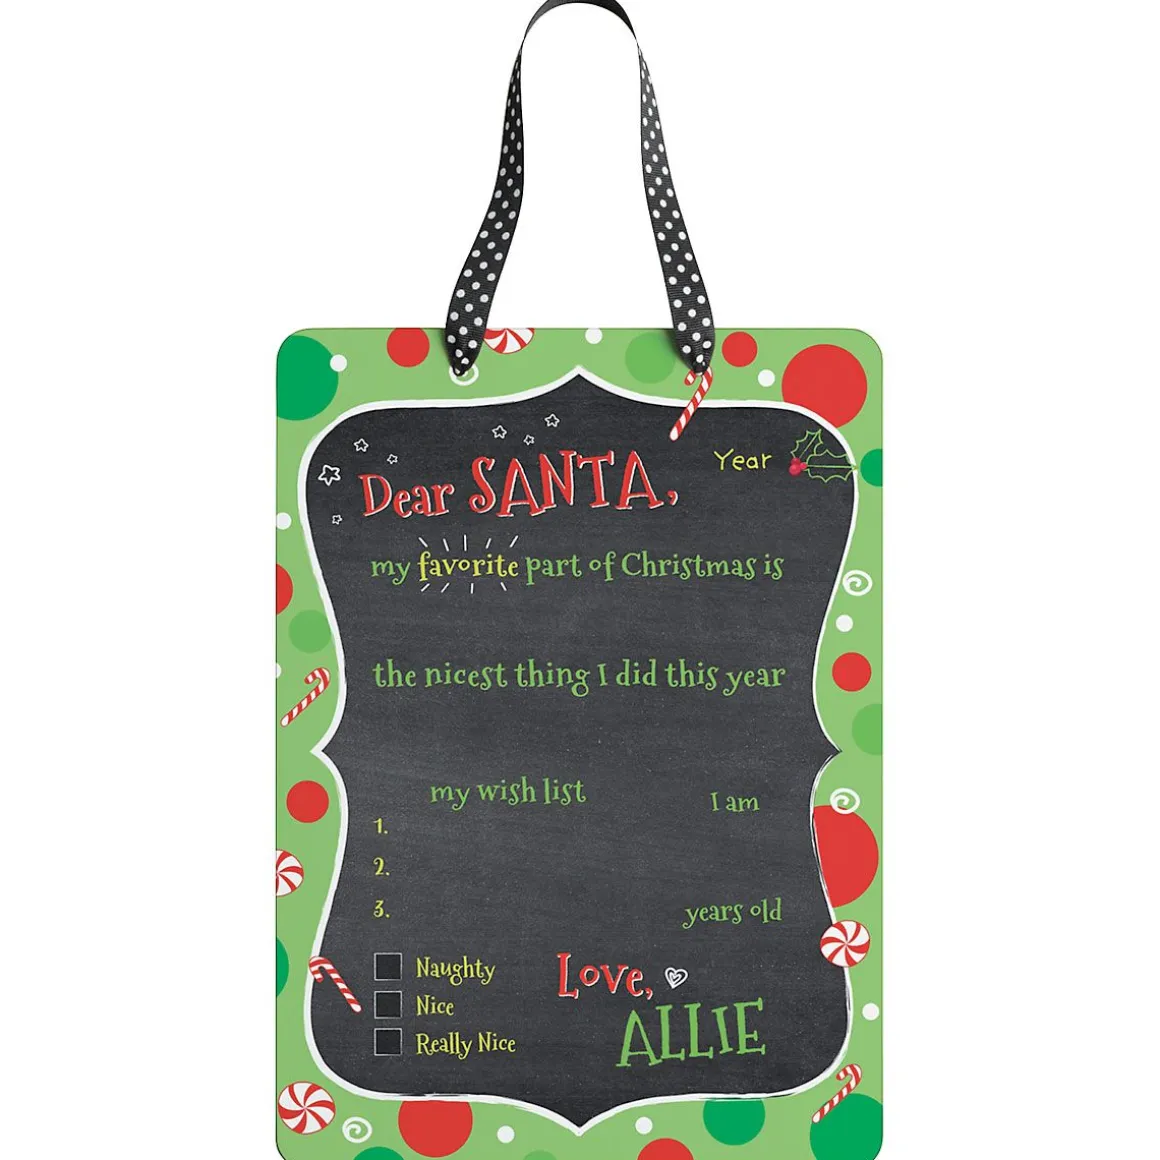 Year
Dear SANTA,
my favorite part of Christmas is
the nicest thing I did this year
my wish list
I am
1.
2.
3.
years old
Naughty
Nice
Really Nice
Love,
ALLIE